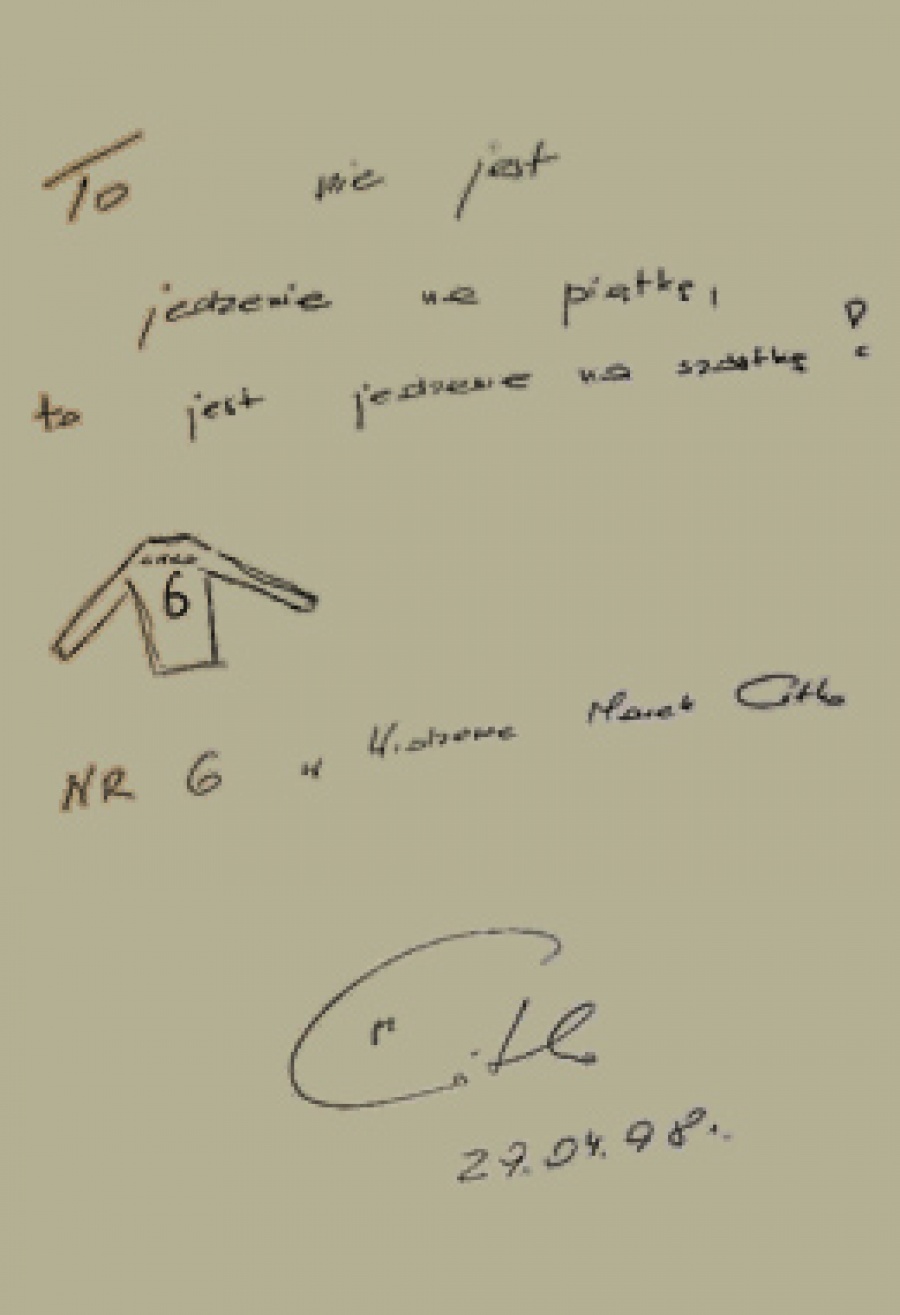 To nie jest
jedzenie na piątkę,
to jest jedzenie na szóstkę!
CITKO
6
NR 6 w Widzewie Marek Citko
M Citko
27.04.98r.